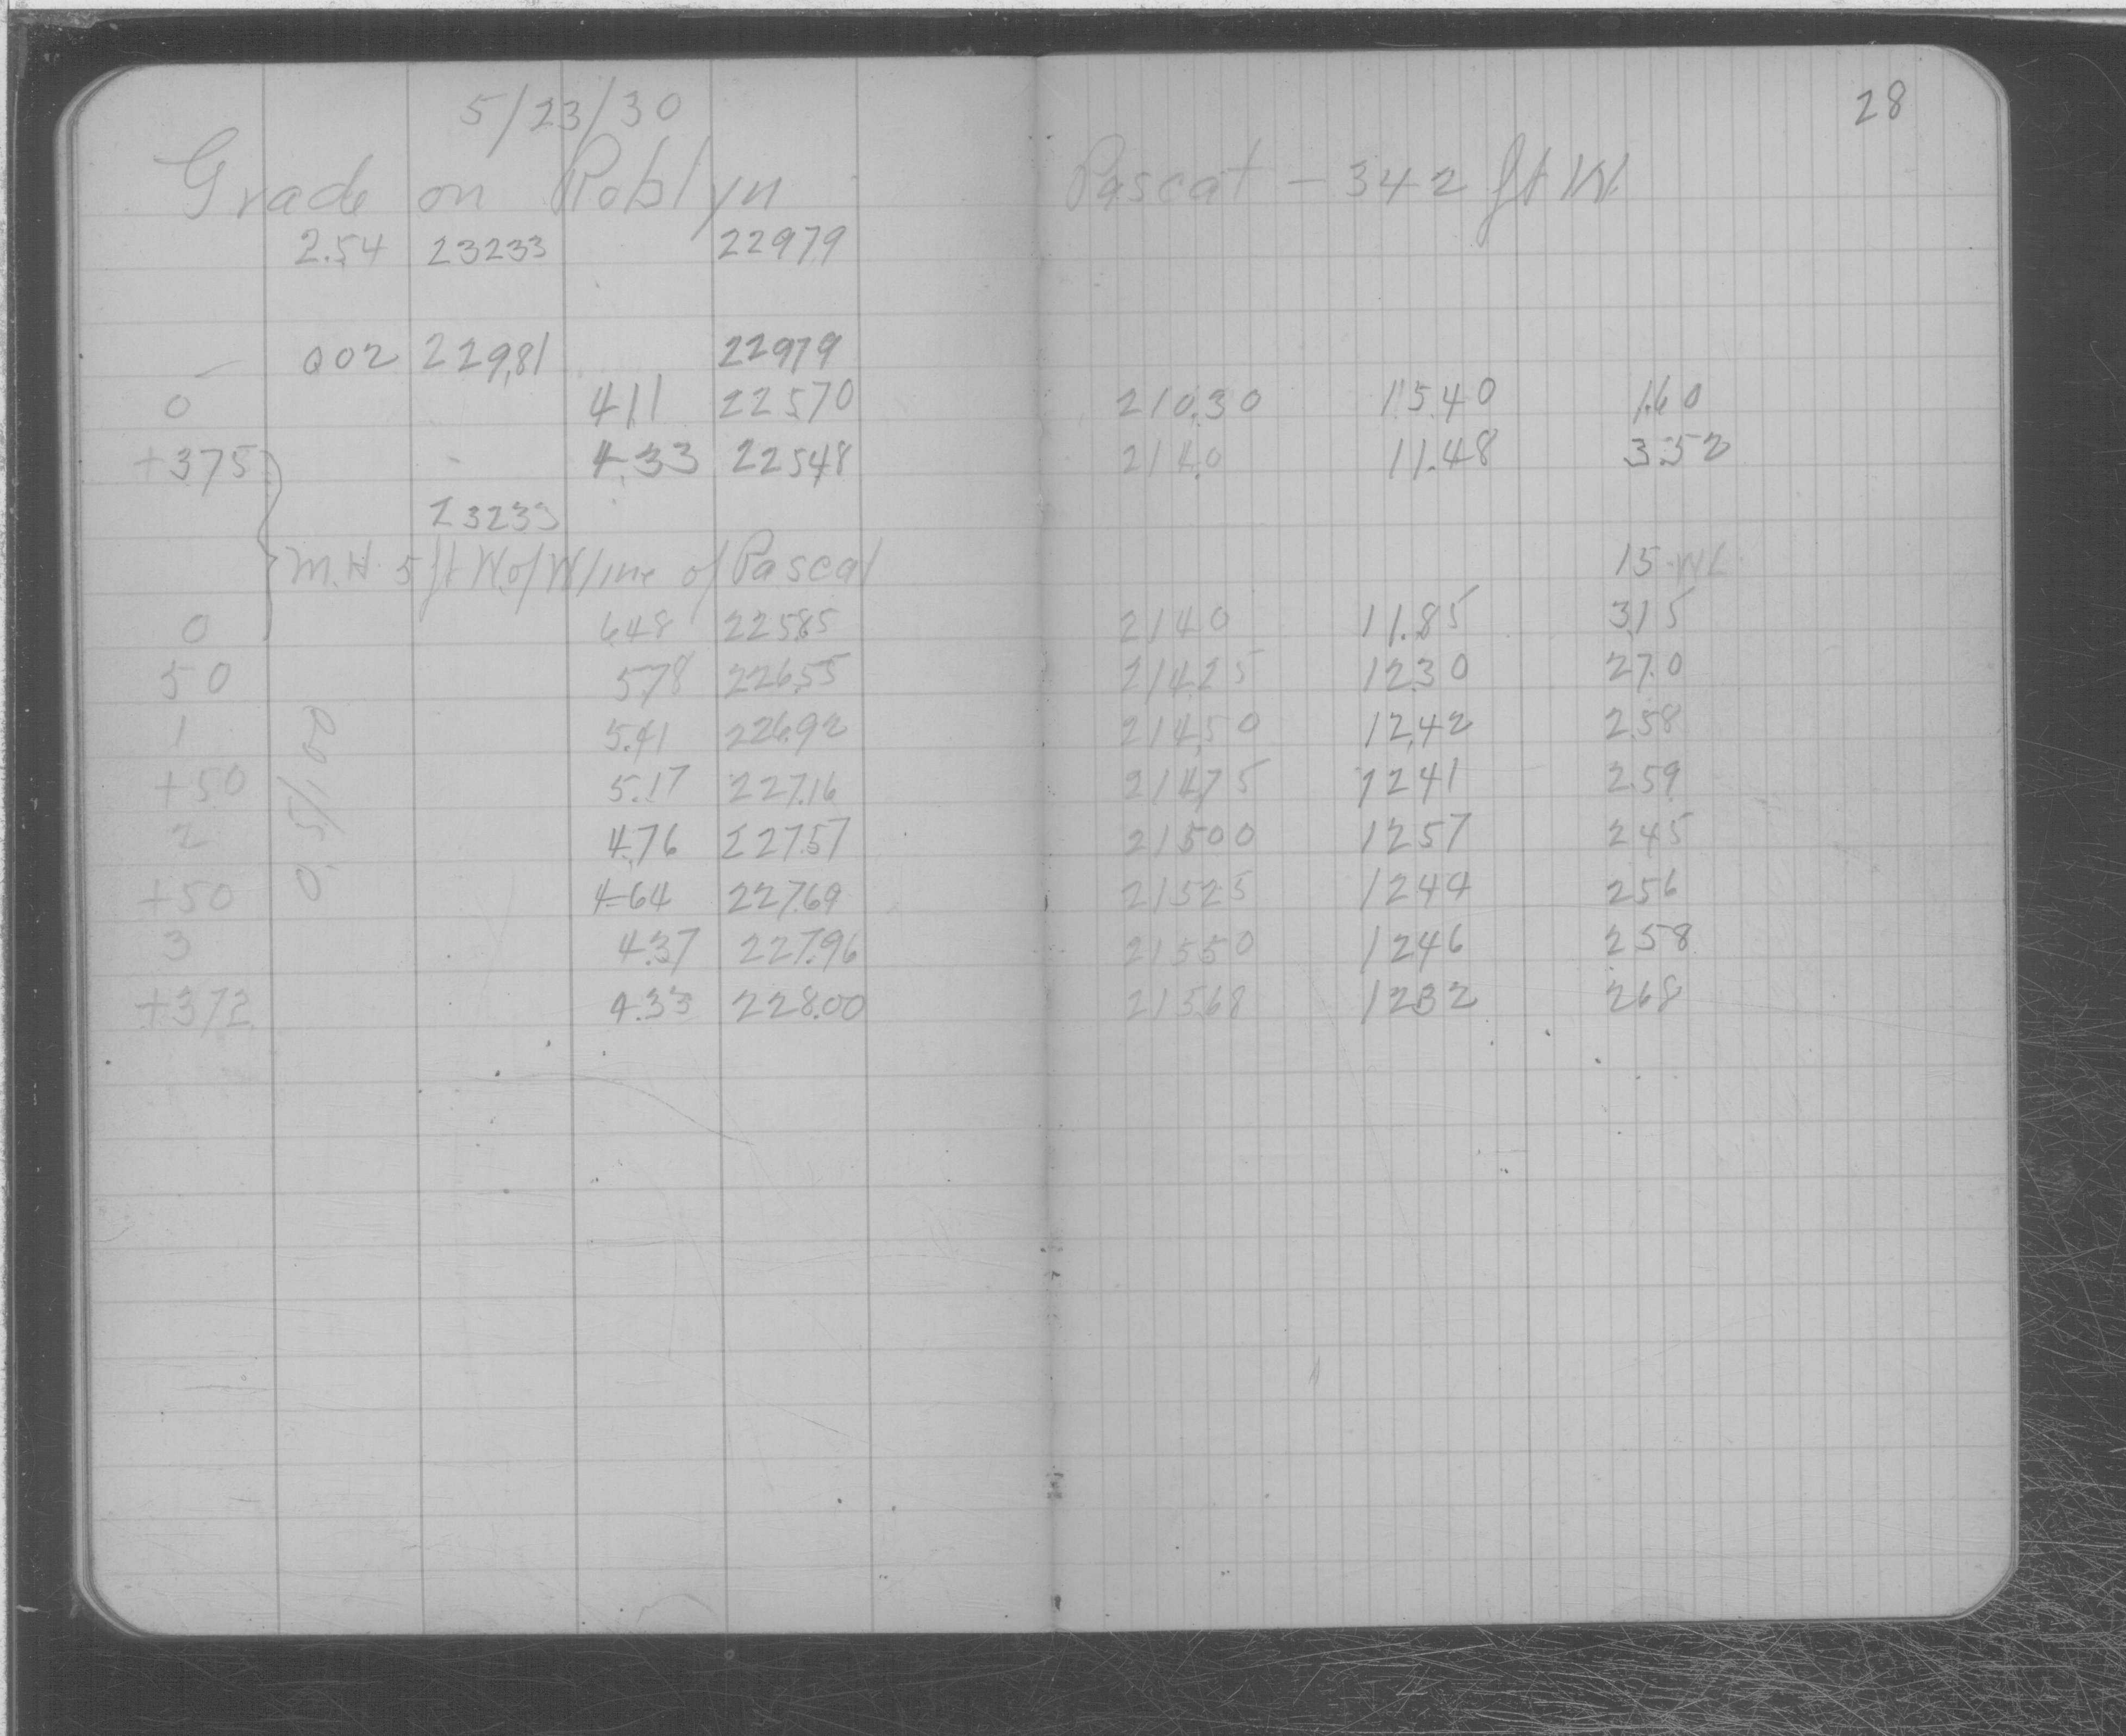 28
5/23/30
Grade on Roblyn Pascal - 342 ft W.
2.54 23233 22979
002 229.81 22979
0 411 22570 210.30 15.40 1.60
+375 4.33 22548 214.0 11.48 352
23233
M.H. 5 ft W. of W line of Pascal 15-WL
0 648 22585 2140 11.85 315
50 578 22655 21425 1230 27.0
1 5.41 22692 21450 12.42 258
+50 5.17 227.16 21475 1241 259
2 4.76 22757 21500 1257 245
+50 464 22769 21525 1244 256
3 4.37 227.96 21550 1246 258
+372 4.33 228.00 21568 1232 268
0.5/100